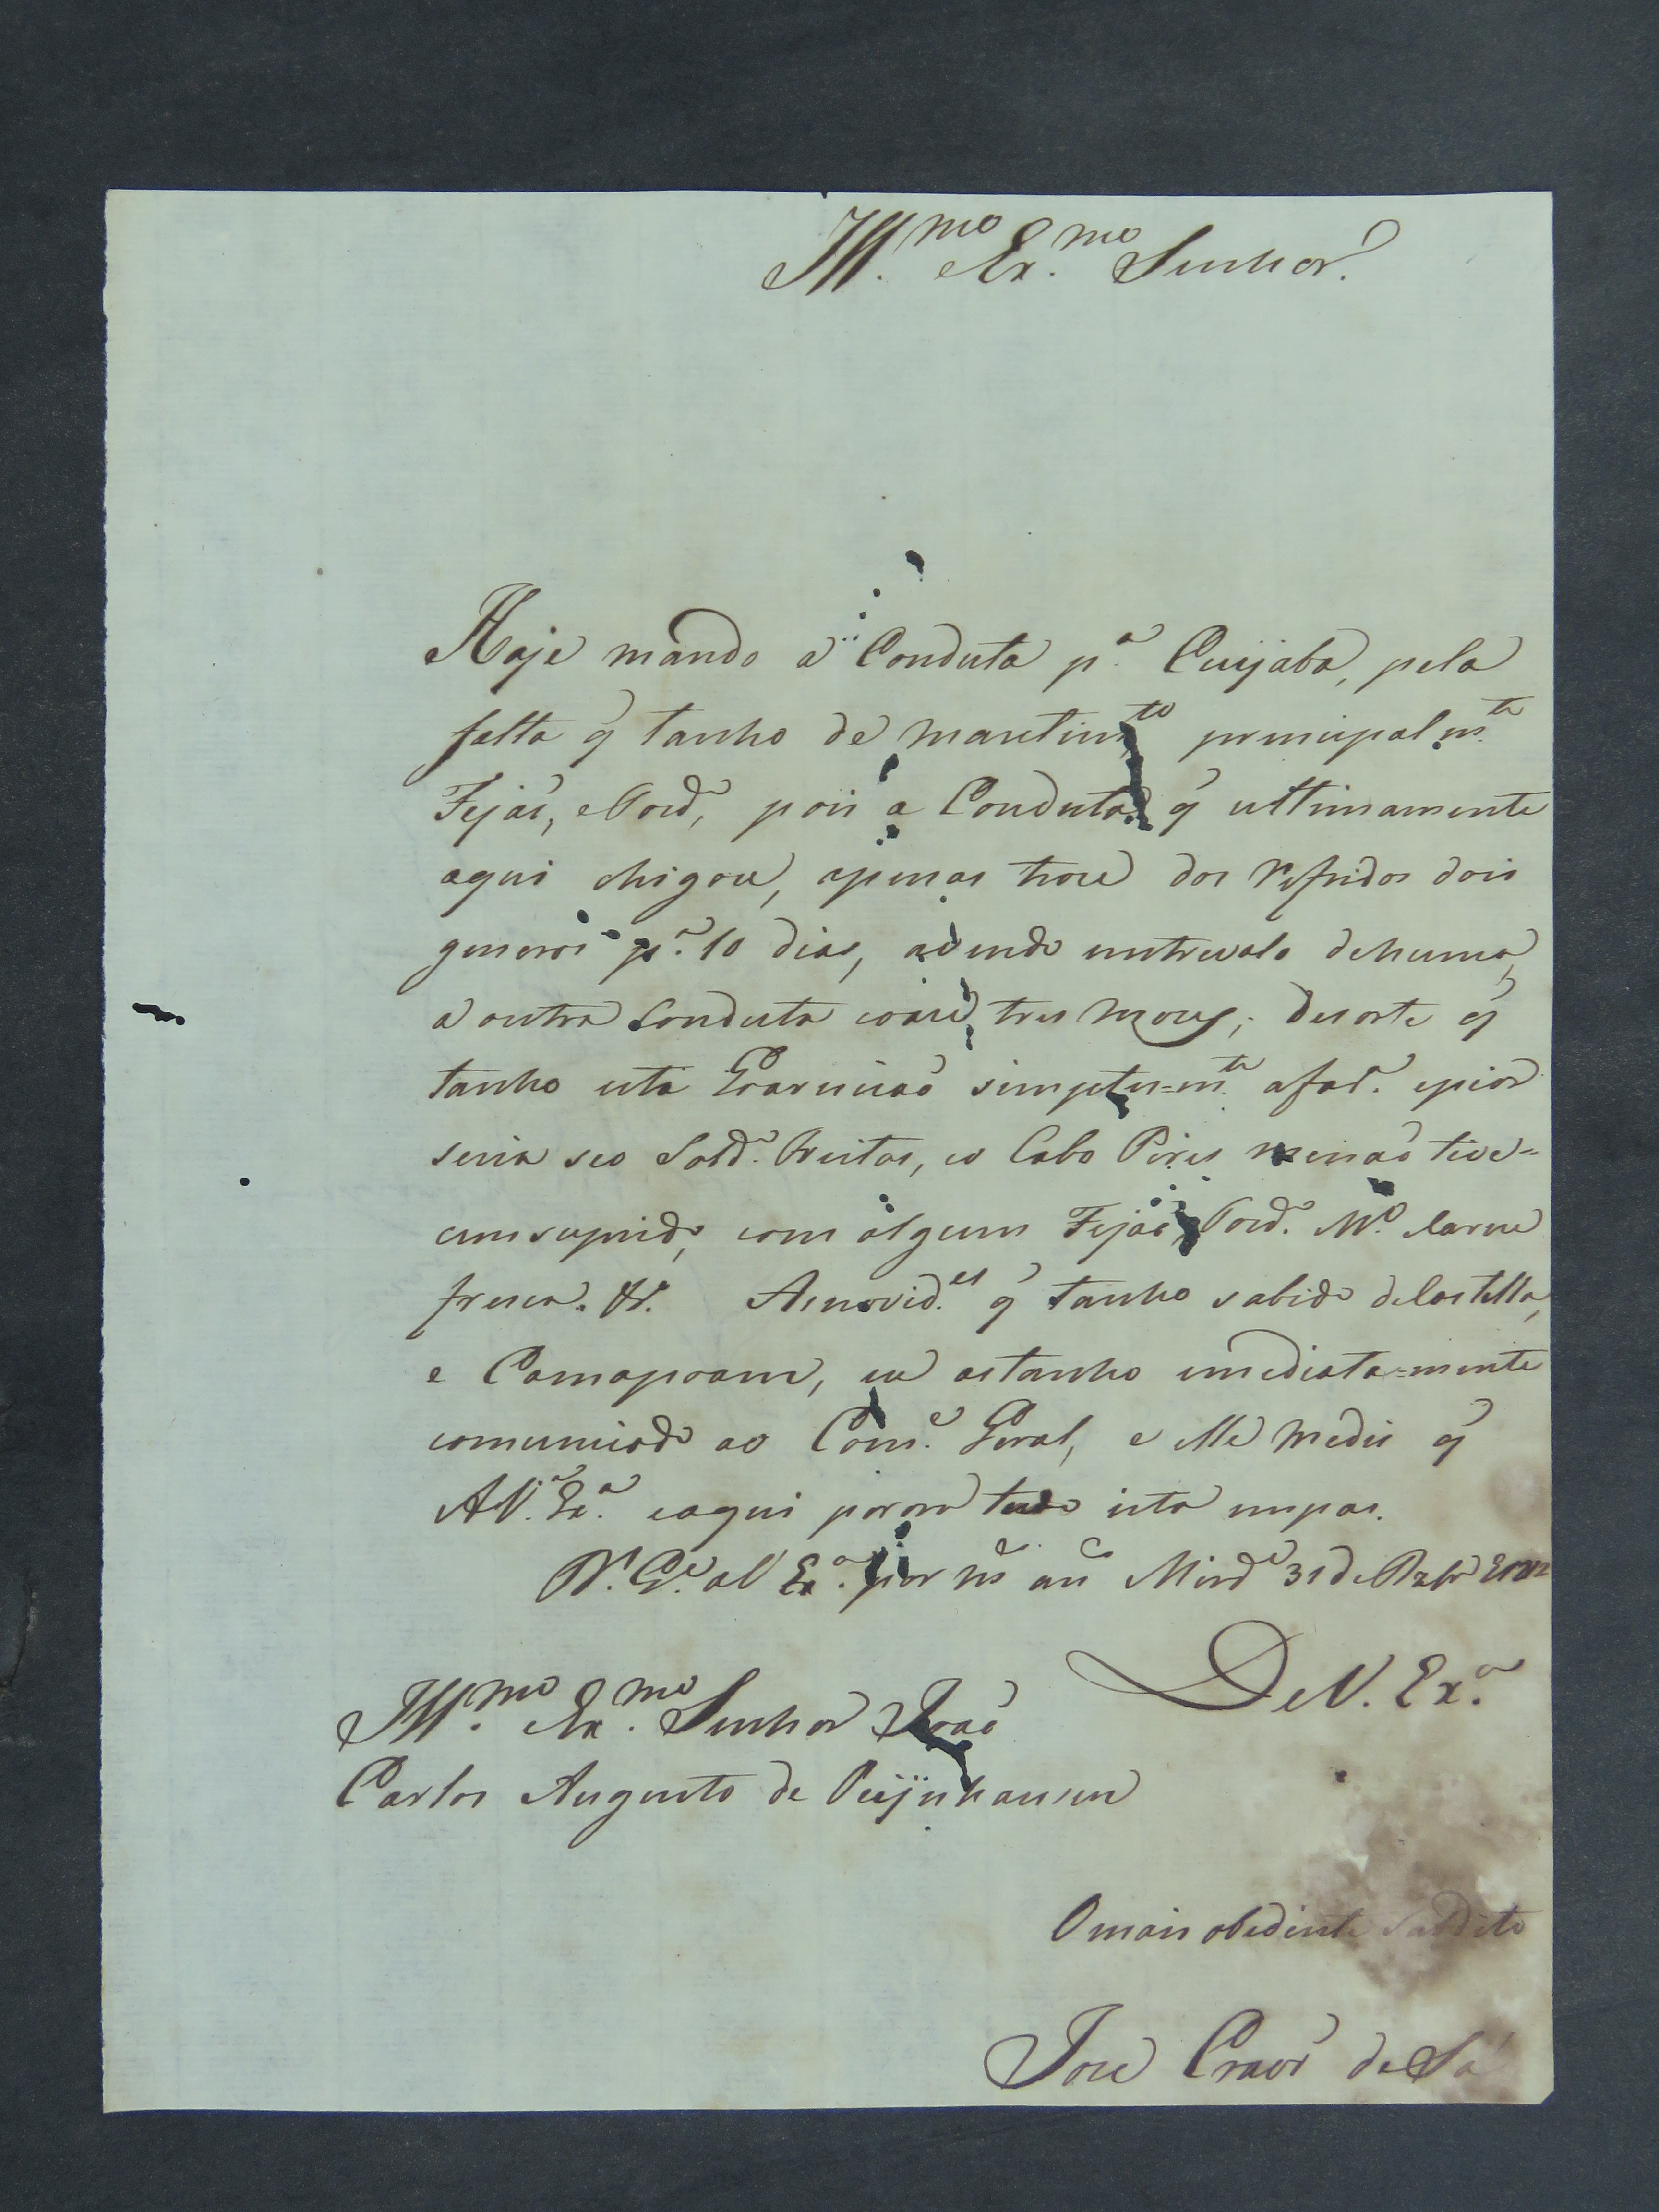 Ill.mo Ex.mo Senhor.
Hoje mando a Conduta p.a Cuijaba, pela
falta q̃ tanho de mantim.to principalm.te
Fejaõ, e Tord.o, pois a Conduta q̃ ultimamente
aqui chigou, apenas troce dos refridos dois
generos p.a 10 dias, avendo untrevalo de huma,
a outra Conduta coaze tres mezes; desorte q̃
tanho esta Goarniçaõ simples=m.te a fad.a epior
seria seo Sold.o Freitas, eo Cabo Pires menaõ tive=
cem suprido, com algum Fejaõ, Tord.o M.o Carne
fresca. &. As novid.es q̃ tanho sabido de Castella,
e Camapoam, eu astanho imediata=mente
comunicado ao Com.e Geral, e elle medis q̃
A V. Ex.a eaqui porora tudo ista empas.
D.s G.e a V. Ex.a por m.s an.s Mird.a 31 de Dzbr.o
De V. Ex.a
Ill.mo Ex.mo Senhor Joaõ
Carlos Augusto de Oeijnhausen
O mais obediente Subdito
Joze Crav.o de Sá